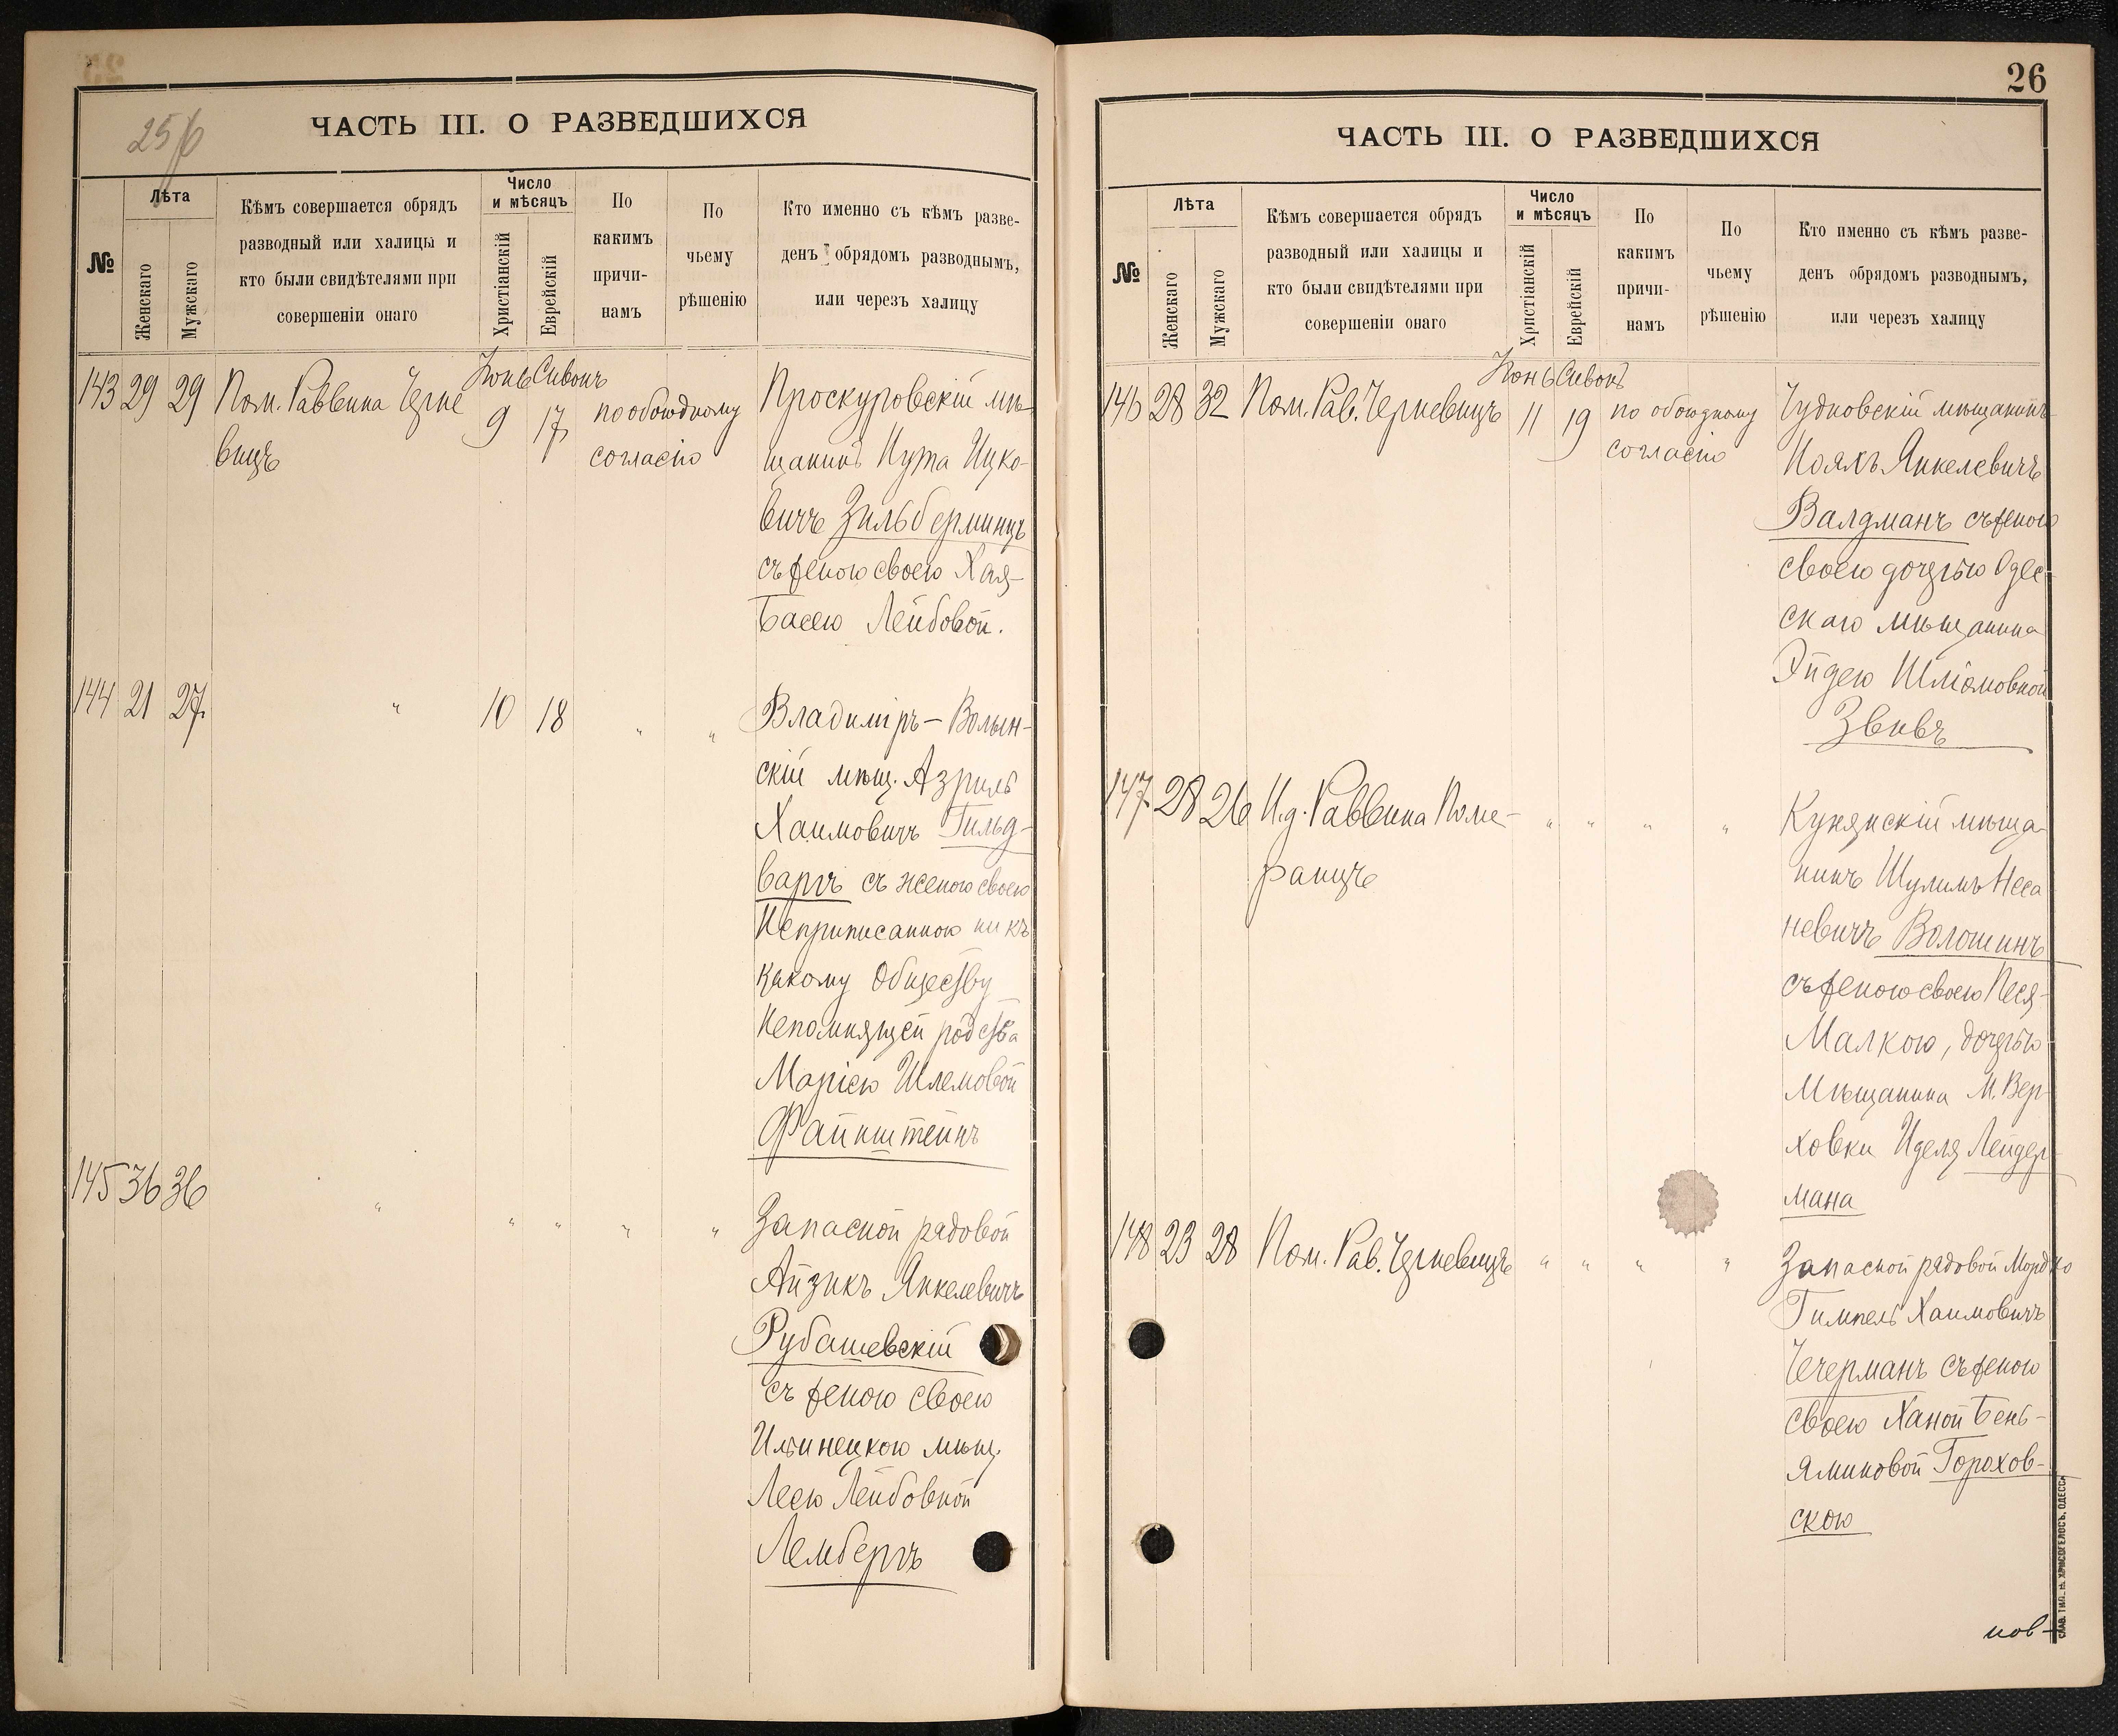 25/б
ЧАСТЬ III. О РАЗВЕДШИХСЯ
№
Лѣта
Женскаго
Мужскаго
Кѣмъ совершается обрядъ
разводный или халицы и
кто были свидѣтелями при
совершеніи онаго
Число
и мѣсяцъ
Христіанскій
Еврейскій
По
какимъ
причи-
намъ
По
чьему
рѣшенію
Кто именно съ кѣмъ разве-
денъ обрядомъ разводнымъ,
или черезъ халицу
Іюнь Сивонъ
143 29 29 Пом. Раввина Черне 9 17 по обоюдному Проскуровскій мѣ-
вицъ согласію щанинъ Нута Ицко-
вичъ Зильберминцъ
съ женою своею Хая-
Басею Лейбовой.
144 21 27 " 10 18 " " Владиміръ-Волын-
скій мѣщ. Азриль
Хаимовичъ Гильд-
варгъ съ женою своею
Неприписанною ни къ
какому Обществу
Непомнящей родства
Маріею Шлемовой
Файнштейнъ
145 36 36 " " " " " Запасной рядовой
Айзикъ Янкелевичъ
Рубашевскій
съ женою своею
Ильинецкою мѣщ.
Леею Лейбовной
Лембергъ
26
ЧАСТЬ III. О РАЗВЕДШИХСЯ
№
Лѣта
Женскаго
Мужскаго
Кѣмъ совершается обрядъ
разводный или халицы и
кто были свидѣтелями при
совершеніи онаго
Число
и мѣсяцъ
Христіанскій
Еврейскій
По
какимъ
причи-
намъ
По
чьему
рѣшенію
Кто именно съ кѣмъ разве-
денъ обрядомъ разводнымъ,
или черезъ халицу
Іюнь Сивонъ
146 28 32 Пом. Рав. Черневицъ 11 19 по обоюдному Чудновскій мѣщанинъ
согласію Нояхъ Янкелевичъ
Валдманъ съ женою
своею дочерью Одес-
скаго мѣщанина
Эйдею Шліомовной
147 28 26 И.д. Раввина Поме- " " " " мѣща-
ранцъ нинъ Шулимъ Неса
невичъ Волошинъ
съ женою своею Песя-
Малкою, дочерью
Мѣщанина М. Вер-
ховки Иделя Лейдер-
мана
148 23 28 Пом. Рав. Черневицъ " " " " Запасной рядовой Мордко
Гимпель Хаимовичъ
Чечерманъ съ женою
своею Ханой Бень-
яминовой Горохов-
скою
нов-
СЛАВ. ТИП. Н. ХРИСОГЕЛОСЪ, ОДЕССА